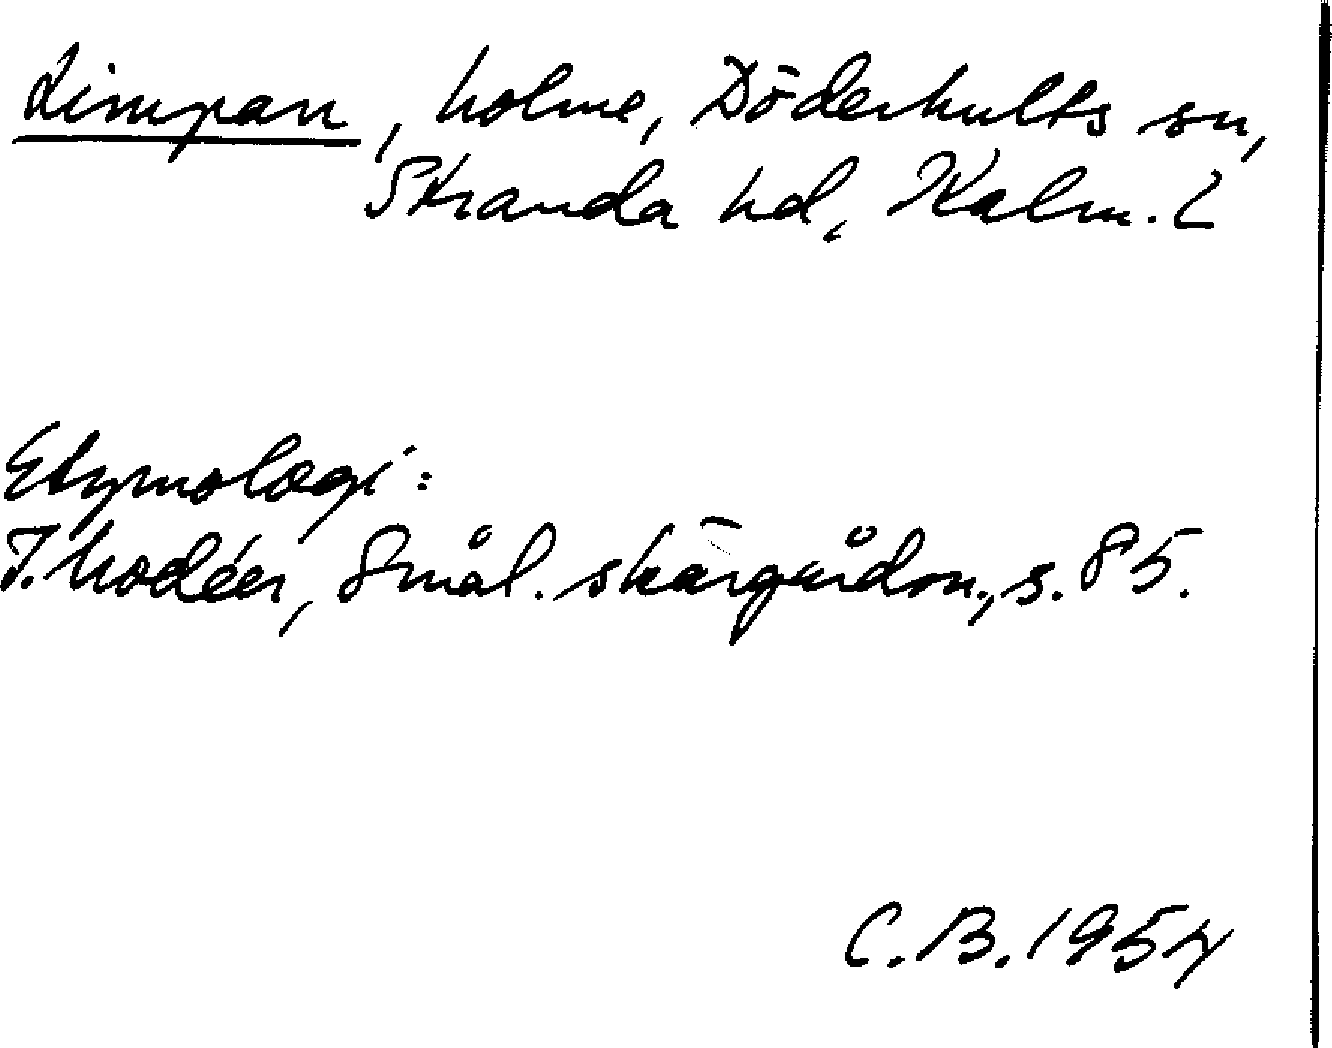 Limpan, holme, Döderhults sn,
Stranda hd, Kalm. L
Etymologi:
I. Modéer, Smål. skärgårdsn., s. 85.
C.B. 1954